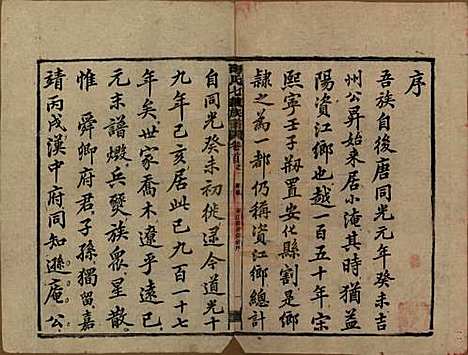 序
吾族自後唐同光元年癸未吉
州公昇始來居小淹其時猶益
陽資江鄉也越一百五十年宋
熙寧壬子剏置安化縣割是鄉
隸之為一都仍稱資江鄉總計
自同光癸未初徙逮今道光十
九年己亥居此已九百一十七
年矣世家喬木遼乎遠已
元末譜燬兵燹族眾星散
惟舜卿府君子孫獨留嘉
靖丙戌漢中府同知遜庵公